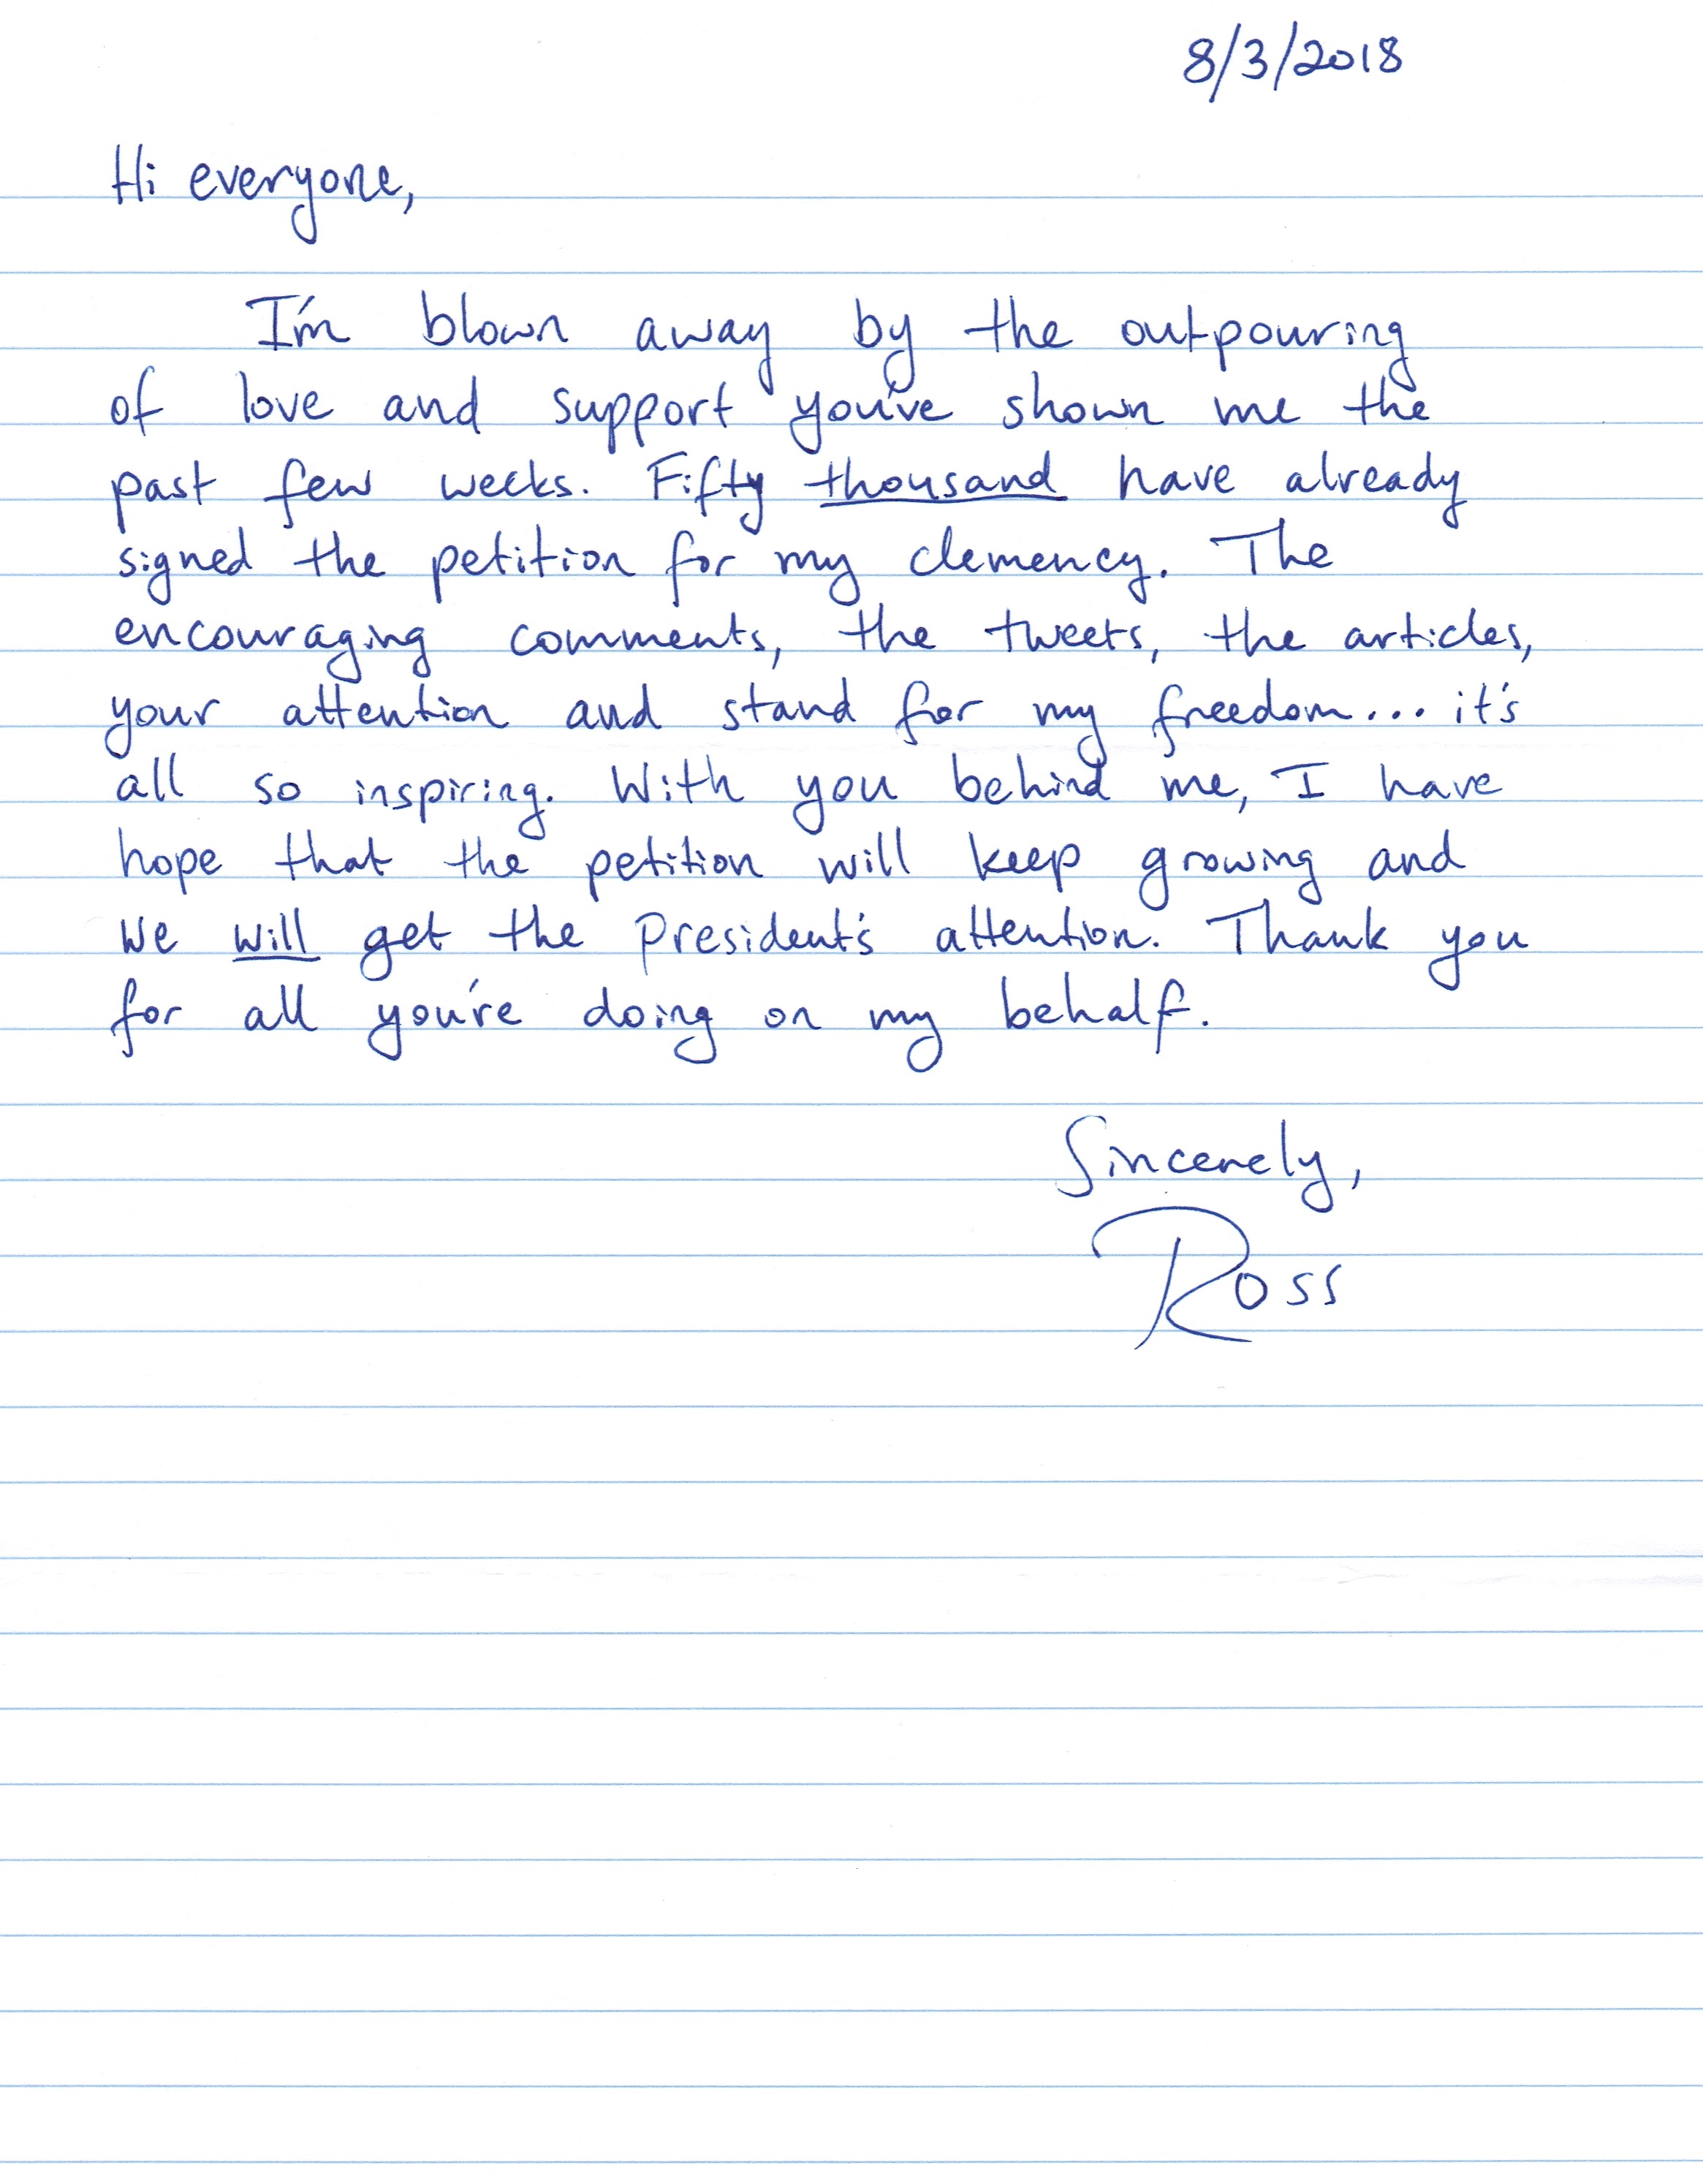 8/3/2018
Hi everyone,
I'm blown away by the outpouring
of love and support you've shown me the
past few weeks. Fifty thousand have already
signed the petition for my clemency. The
encouraging comments, the tweets, the articles,
your attention and stand for my freedom... it's
all so inspiring. With you behind me, I have
hope that the petition will keep growing and
we will get the president's attention. Thank you
for all you're doing on my behalf.
Sincerely,
Ross